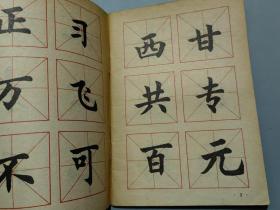 甘专元
西共百
习飞可
正万不
· 3 ·